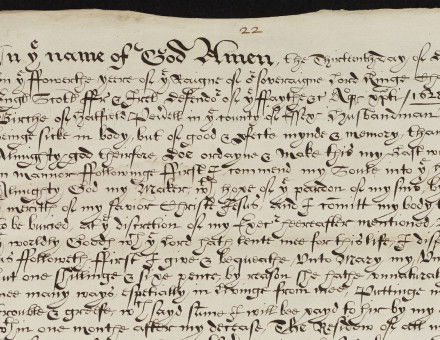 22
In ye name of God Amen, the Thirteenth day of
in ye ffowerthe yeere of ye Raigne of or soveraigne lord Kinge
Kinge Scotl ffr & Irel: defendor of ye ffaythe &c Ao 1628
Birche of Hatfield Peverell in ye county of Essex Husbandman
beinge sicke in body, but of good & pfecte mynde & memory, than
Almighty god therfore, doe ordayne & make this my last w
in mannor followinge ffirst I commend my soule into ye
Almighty God my Maker, wth hope of ye pardon of my sins
meritts of my savior Christe Jesus, and I comitt my body
to be buried, at ye discretion of my Exer hereafter mentioned
my worldly Goods wch ye lord hath lente mee for this life I dis
as followeth ffirst I give & bequeathe unto Mary my
but one shillinge & sixe pence, by reason she hathe unnaturall
mee many ways, espetially in goinge from mee, Puttinge m
trouble & greefe, wch sayd sume I will bee payd to hir by my
wthin one monthe after my decease, The Residew of all m